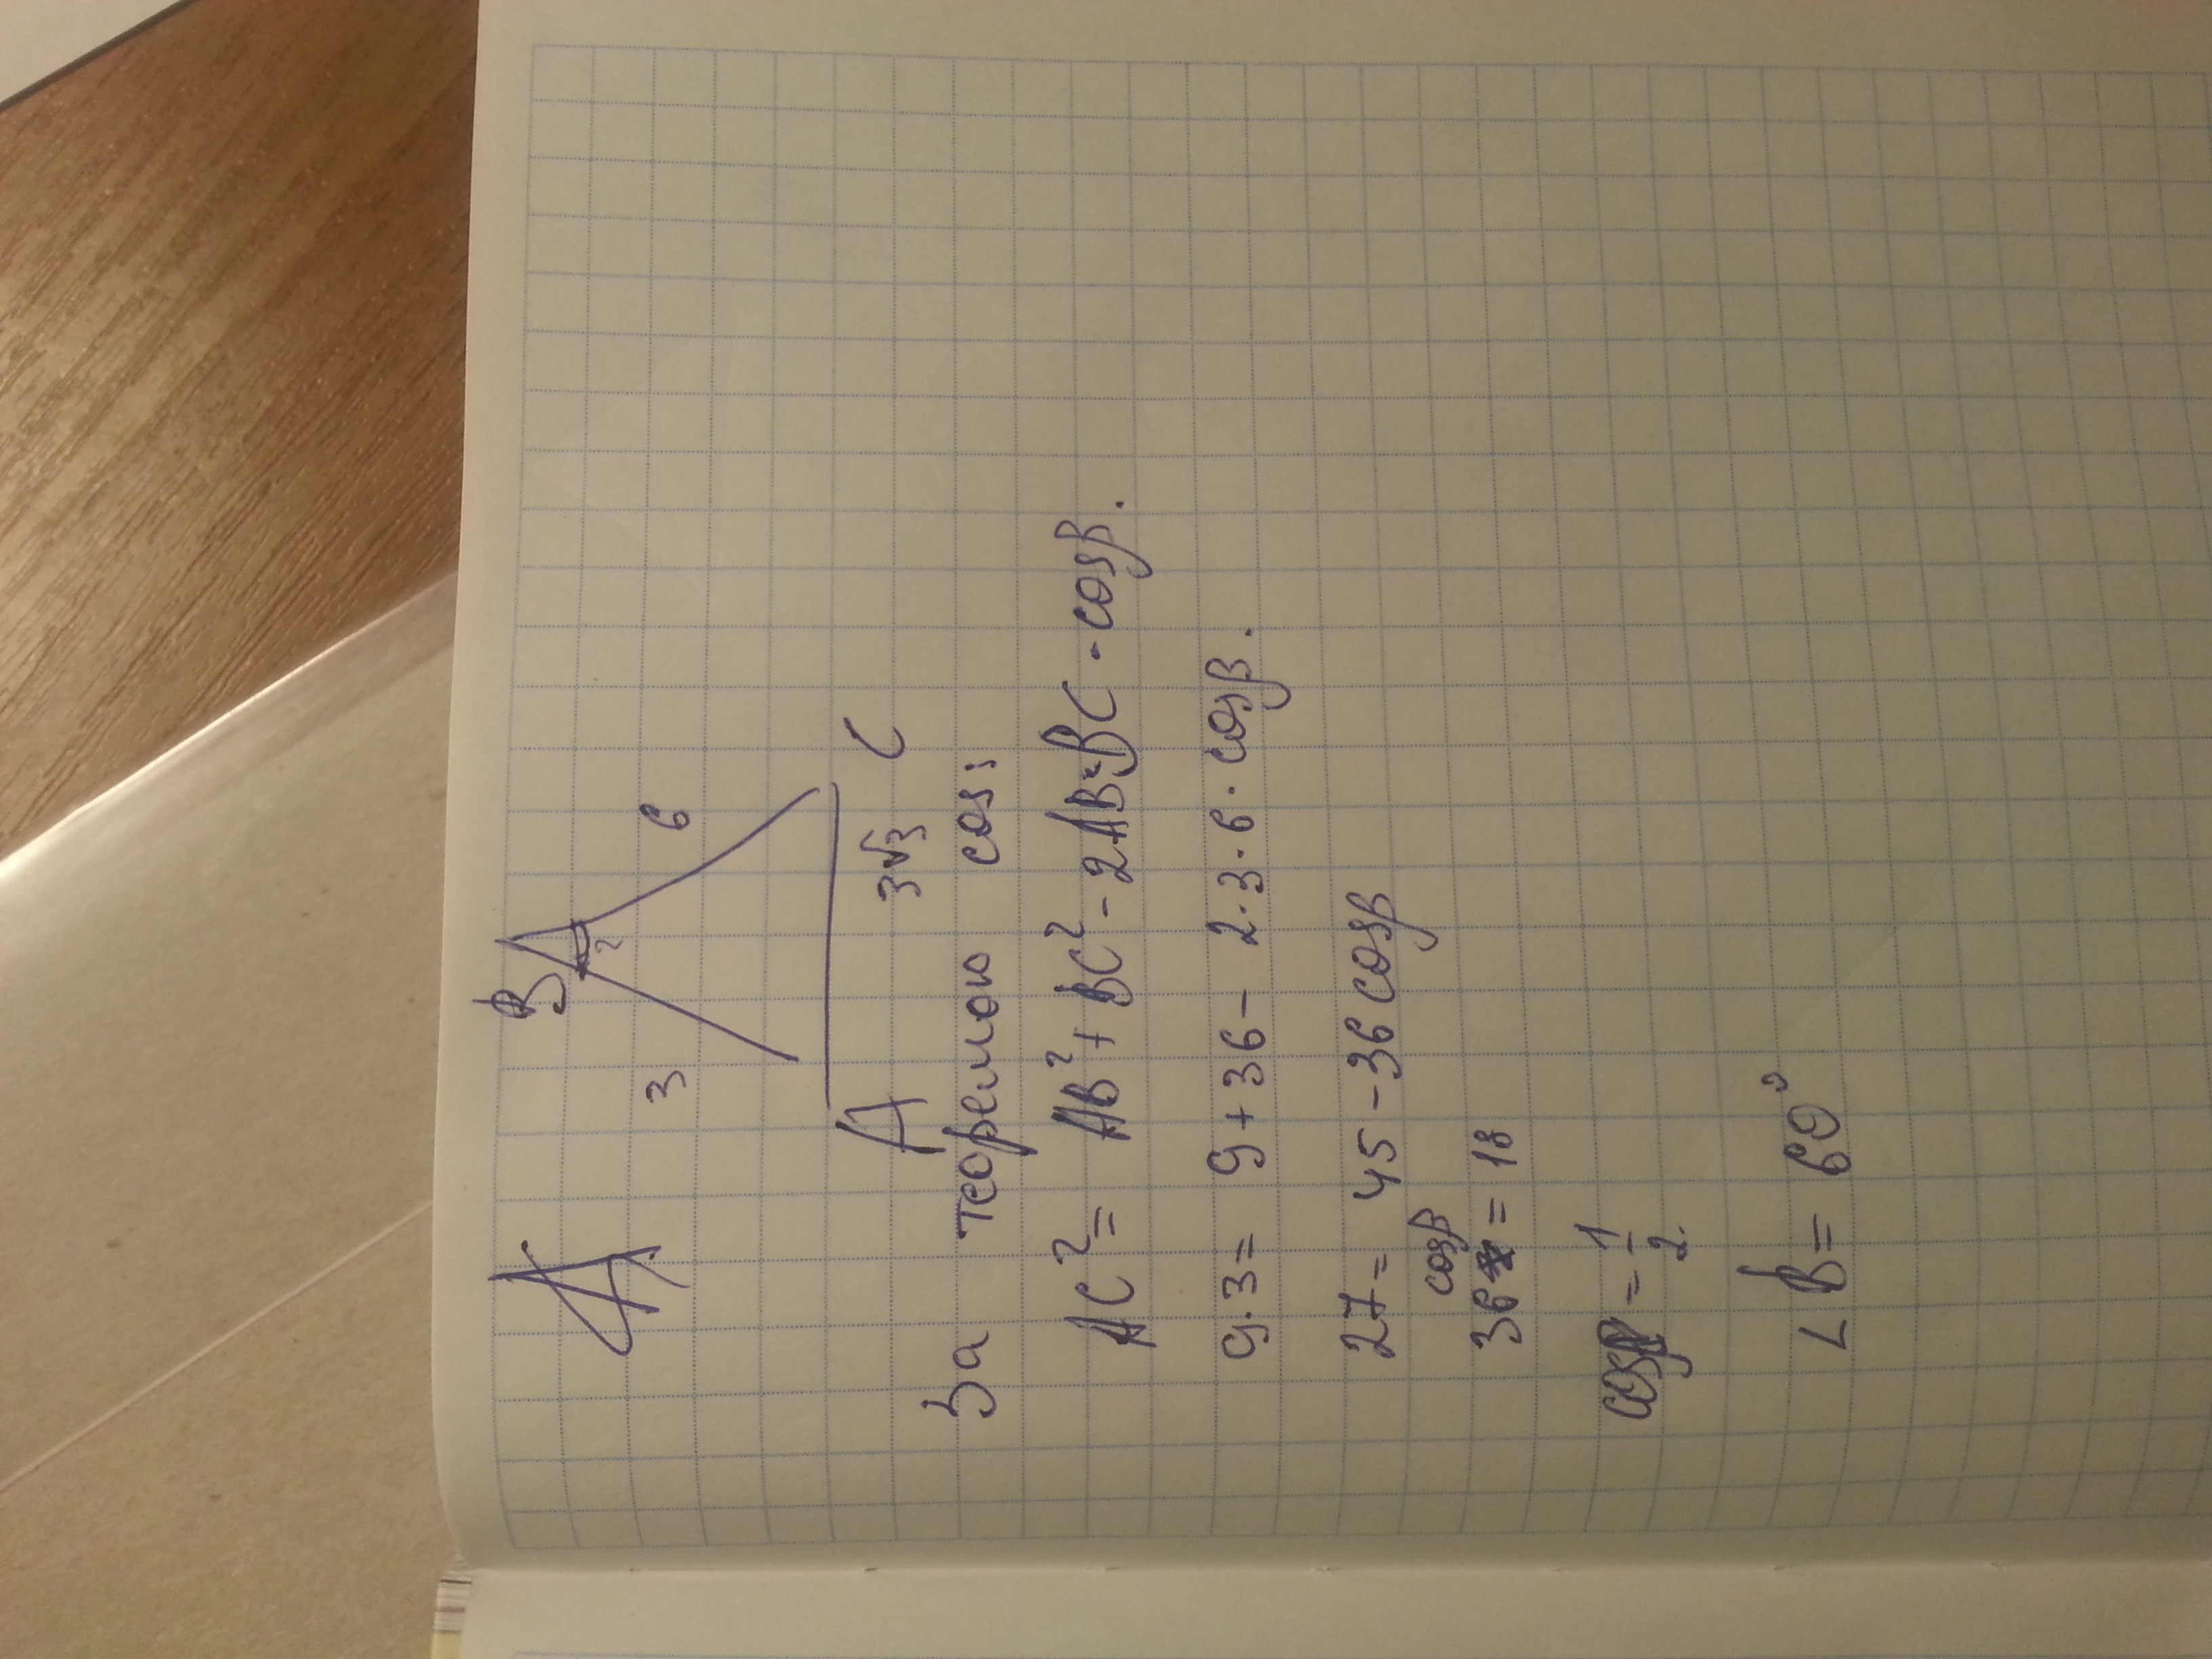 B
3
6
?
A
C
3√3
За теремою cos:
AC² = AB² + BC² - 2AB·BC·cosβ.
9·3 = 9+36- 2·3·6·cosβ.
27 = 45 - 36 cosβ
36 cosβ = 18
cosβ = 1/2.
∠B = 60°